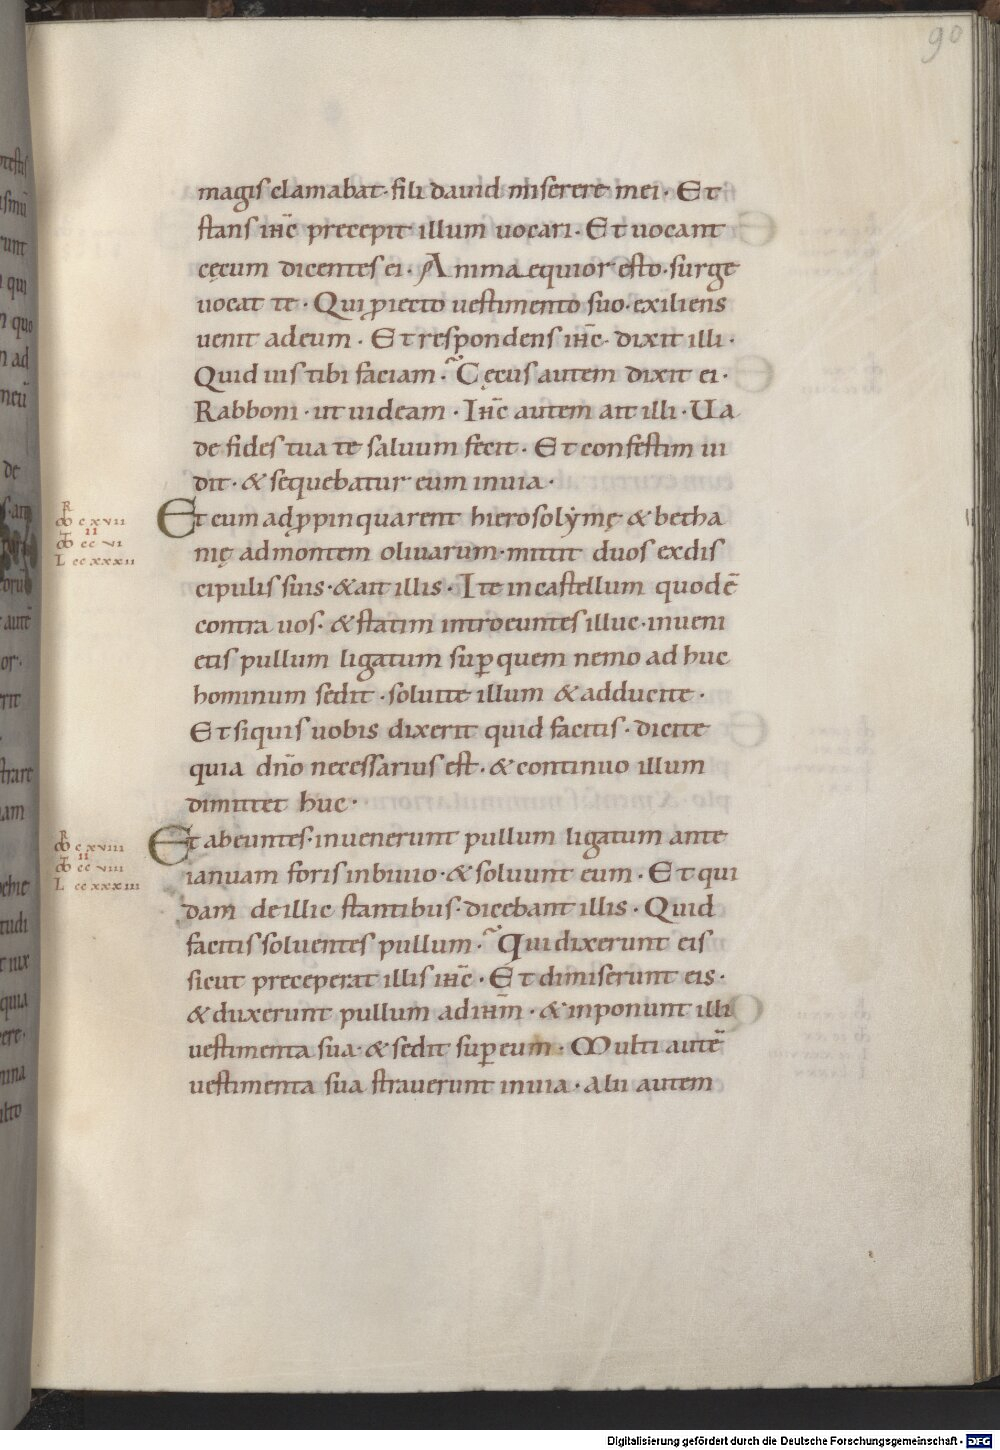 90
magis clamabat· fili dauid miserere mei· Et
stans ih̅c precepit illum uocari· Et uocant
cęcum dicentes ei· Anima equior esto· surge
uocat te· Qui ꝓiecto uestimento suo· exiliens
uenit ad eum· Et respondens ih̅c· dixit illi·
Quid uis tibi faciam·? Cęcus autem dixit ei·
Rabboni· ut uideam· Ih̅c autem ait illi· Ua
de fides tua te saluum fecit· Et confestim ui
dit· & sequebatur eum in uia·
Et cum adꝓpinquarent hierosolẏmę & betha
R
ꝏ cxvii
nię ad montem oliuarum· mittit duos ex dis
II
ꝏ ccvi
cipulis suis· & ait illis· Ite in castellum quod ē
L ccxxxii
contra uos· & statim introeuntes illuc· inueni
etis pullum ligatum suꝑ quem nemo adhuc
hominum sedit· soluite illum & adducite·
Et si quis uobis dixerit quid facitis· dicite
quia dn̅o necessarius est· & continuo illum
dimittet huc·
Et abeuntes· inuenerunt pullum ligatum ante
R
ꝏ cxviii
ianuam foris in biuio· & soluunt eum· Et qui
II
ꝏ ccviii
dam de illic stantibus· dicebant illis· Quid
L ccxxxiii
facitis soluentes pullum·? Qui dixerunt eis
sicut preceperat illis ih̅c· Et dimiserunt eis·
& duxerunt pullum ad ih̅m· & inponunt illi
uestimenta sua· & sedit suꝑ eum· Multi autē
uestimenta sua strauerunt in uia· alii autem
Digitalisierung gefördert durch die Deutsche Forschungsgemeinschaft - DFG